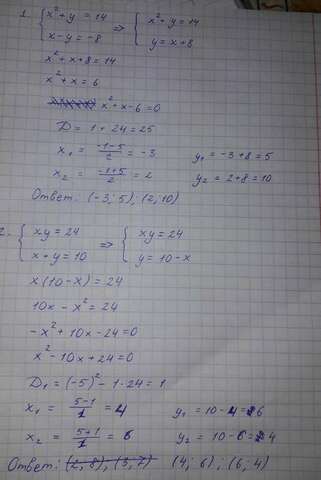 1.
{ x² + y = 14 => { x² + y = 14
x - y = -8 y = x + 8
x² + x + 8 = 14
x² + x = 6
x² + x - 6 = 0
D = 1 + 24 = 25
x₁ = (-1-5)/2 = -3 y₁ = -3 + 8 = 5
x₂ = (-1+5)/2 = 2 y₂ = 2 + 8 = 10
Ответ: (-3; 5), (2; 10)
2.
{ xy = 24 => { xy = 24
x + y = 10 y = 10 - x
x(10 - x) = 24
10x - x² = 24
-x² + 10x - 24 = 0
x² - 10x + 24 = 0
D₁ = (-5)² - 1·24 = 1
x₁ = (5-1)/1 = 4 y₁ = 10 - 4 = 6
x₂ = (5+1)/1 = 6 y₂ = 10 - 6 = 4
Ответ: (4; 6); (6; 4)